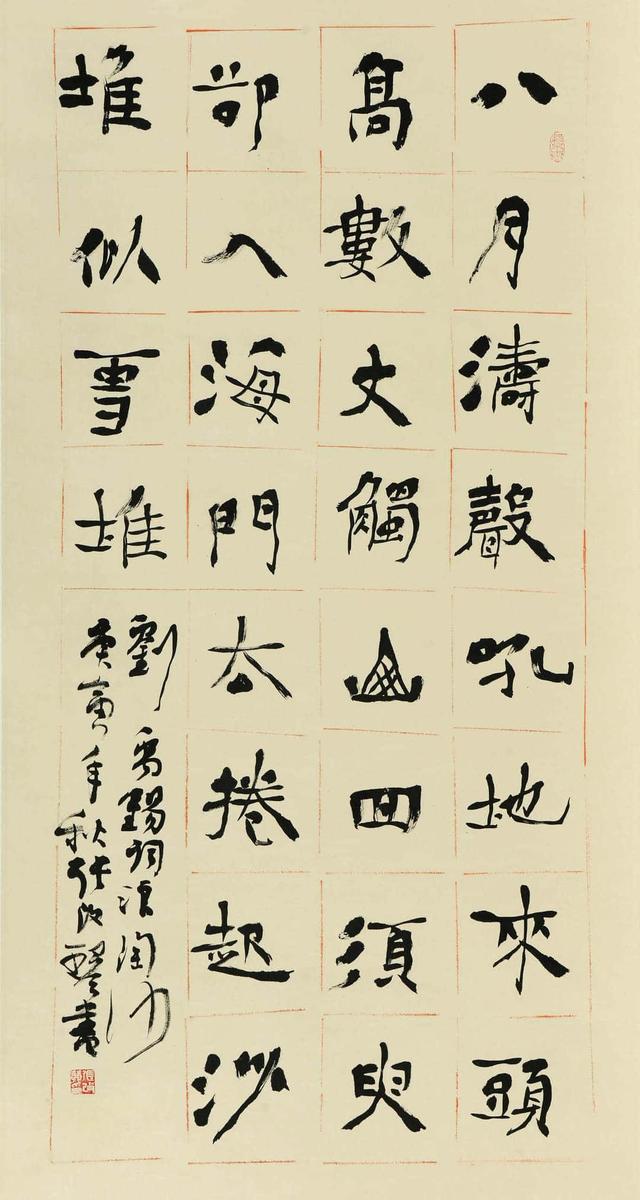 八月濤聲吼地來頭
髙數丈觸山回須臾
卻入海門去捲起沙
堆似雪堆
劉禹錫詞浪淘沙
庚寅年秋張改琴書